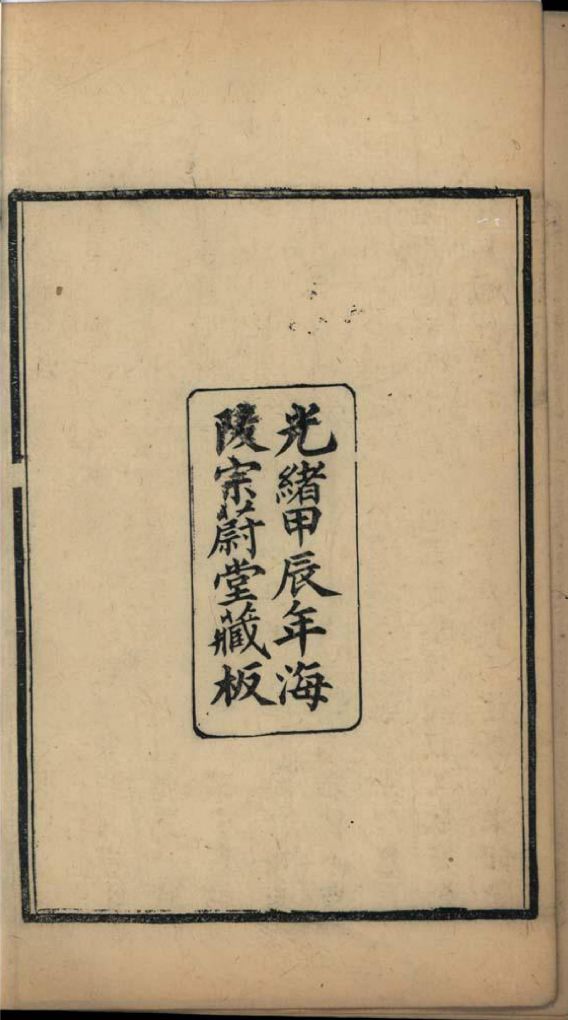 光緒甲辰年海
陵宗蔚堂藏板